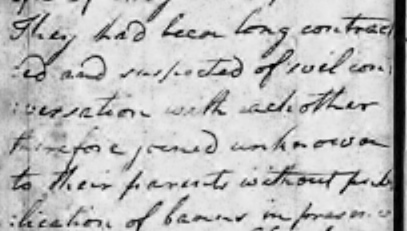 They had been long contract
:ed and suspected of evil con:
:versation with each other
therefore joined unknown
to their parents without pub
:lication of banns in presence